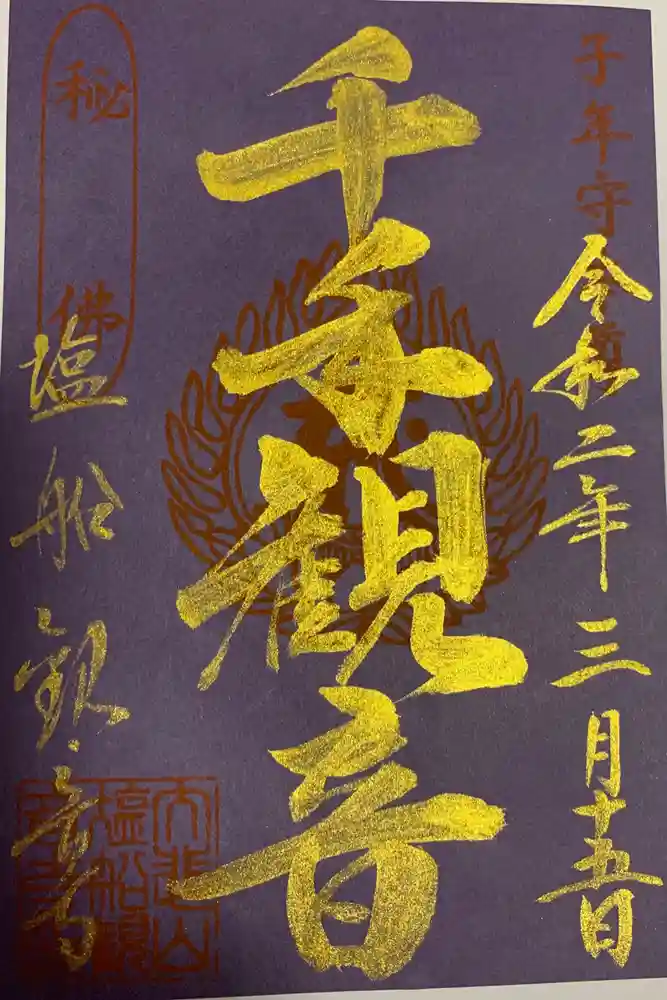 子年守
令和二年三月十五日
千手観音
秘佛
塩船観音寺
大悲山
塩船観
音寺